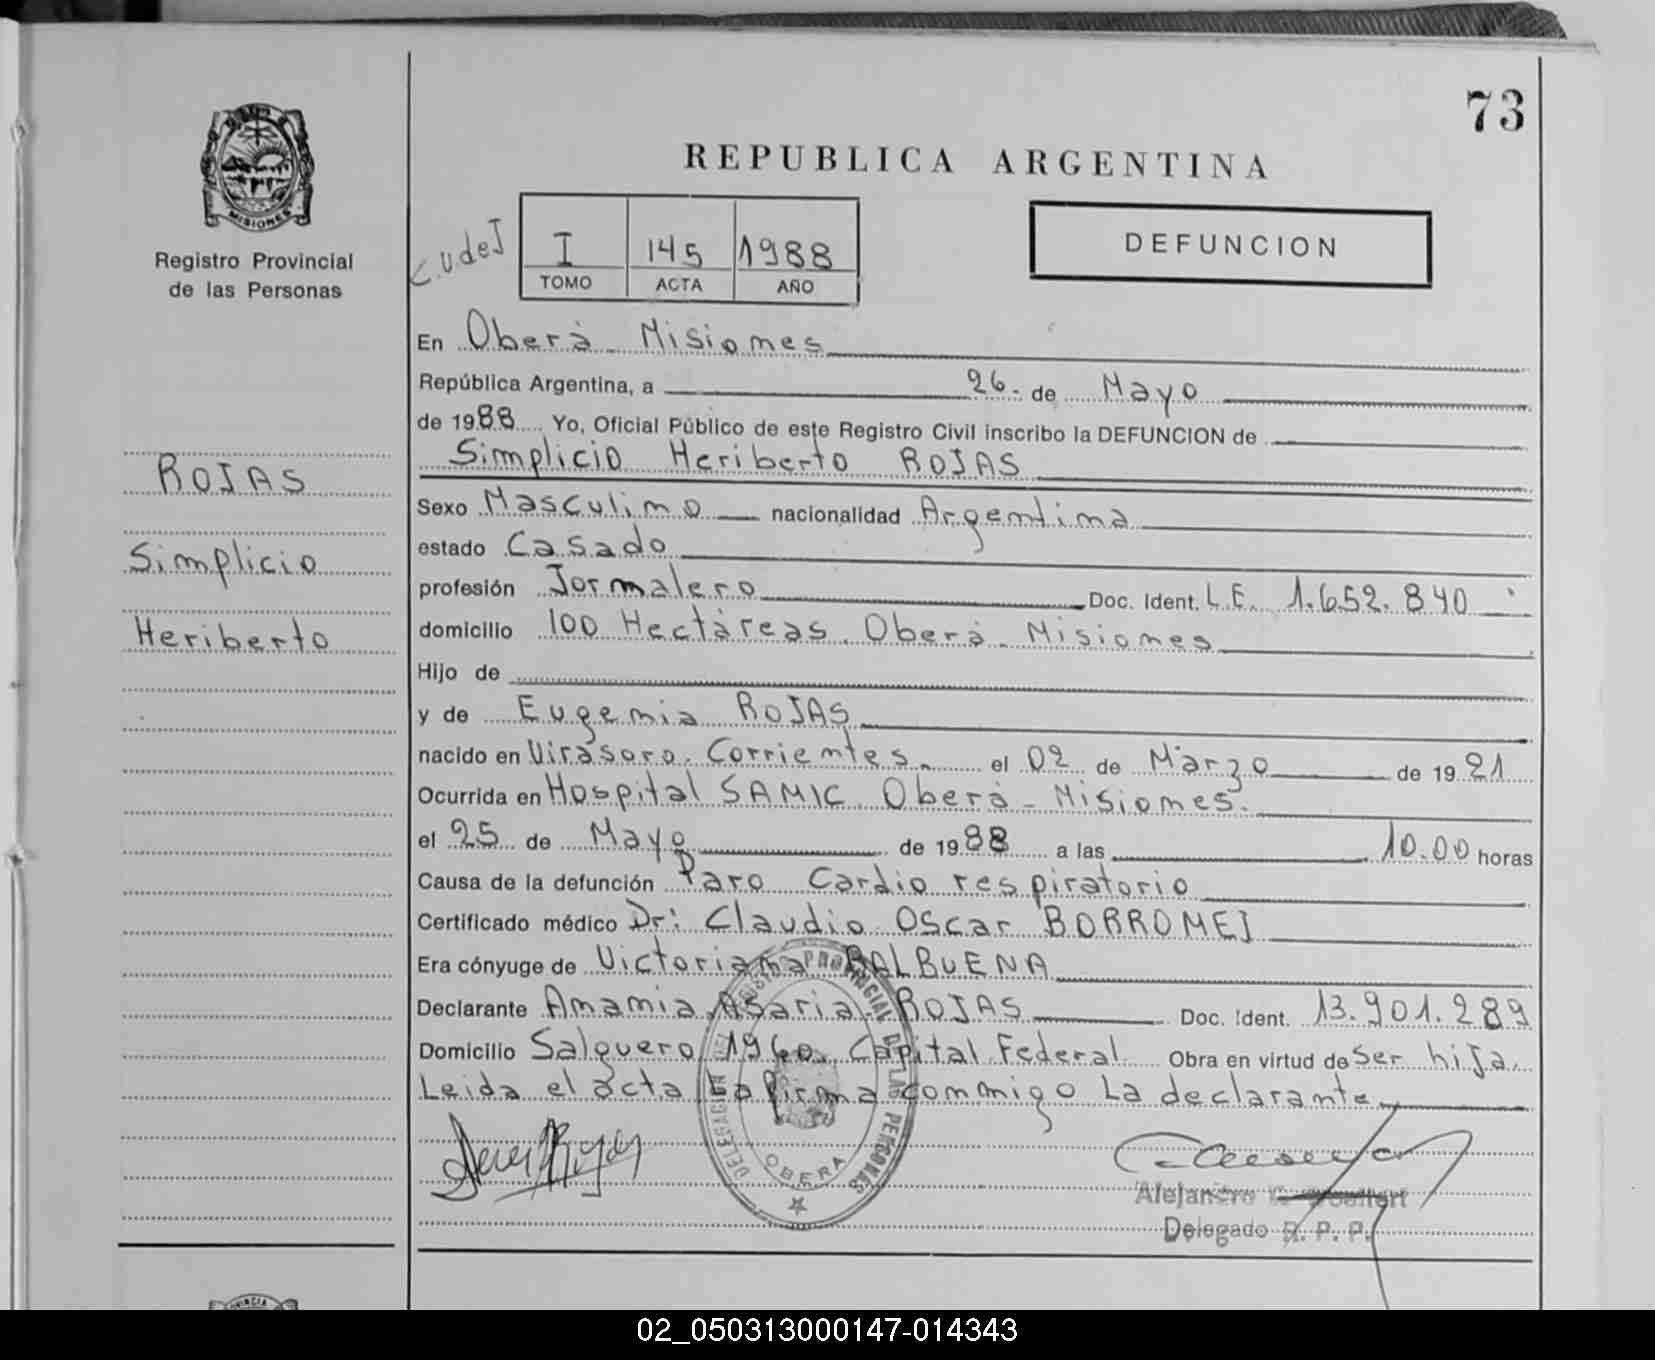 73
REPUBLICA ARGENTINA
MISIONES
Registro Provincial
de las Personas
C.U de J
I 145 1988
TOMO ACTA AÑO
DEFUNCION
En Oberà Misiones
República Argentina, a 26. de Mayo
de 1988 Yo, Oficial Público de este Registro Civil inscribo la DEFUNCION de
Simplicio Heriberto ROJAS
ROJAS
Simplicio
Heriberto
Sexo Masculino nacionalidad Argentina
estado Casado
profesión Jornalero Doc. Ident. L.E. 1.652.840
domicilio 100 Hectàreas. Oberà - Misiones
Hijo de
y de Eugenia ROJAS
nacido en Viràsoro. Corrientes. el 02 de Marzo de 1921
Ocurrida en Hospital SAMIC Oberà - Misiones.
el 25 de Mayo de 1988 a las 10.00 horas
Causa de la defunción Paro Cardio respiratorio
Certificado médico Dr: Claudio Oscar BORROMEI
Era cónyuge de Victoriana BALBUENA
Declarante Anania Asaria ROJAS Doc. Ident. 13.901.289
Domicilio Salguero 1960. Capital Federal Obra en virtud de Ser hija.
Leida el acta La firma conmigo La declarante
DELEGACION DEL REGISTRO PROVINCIAL DE LAS PERSONAS
OBERA
Alejandro
Delegado R. P. P.
PROVINCIA
02_050313000147-014343